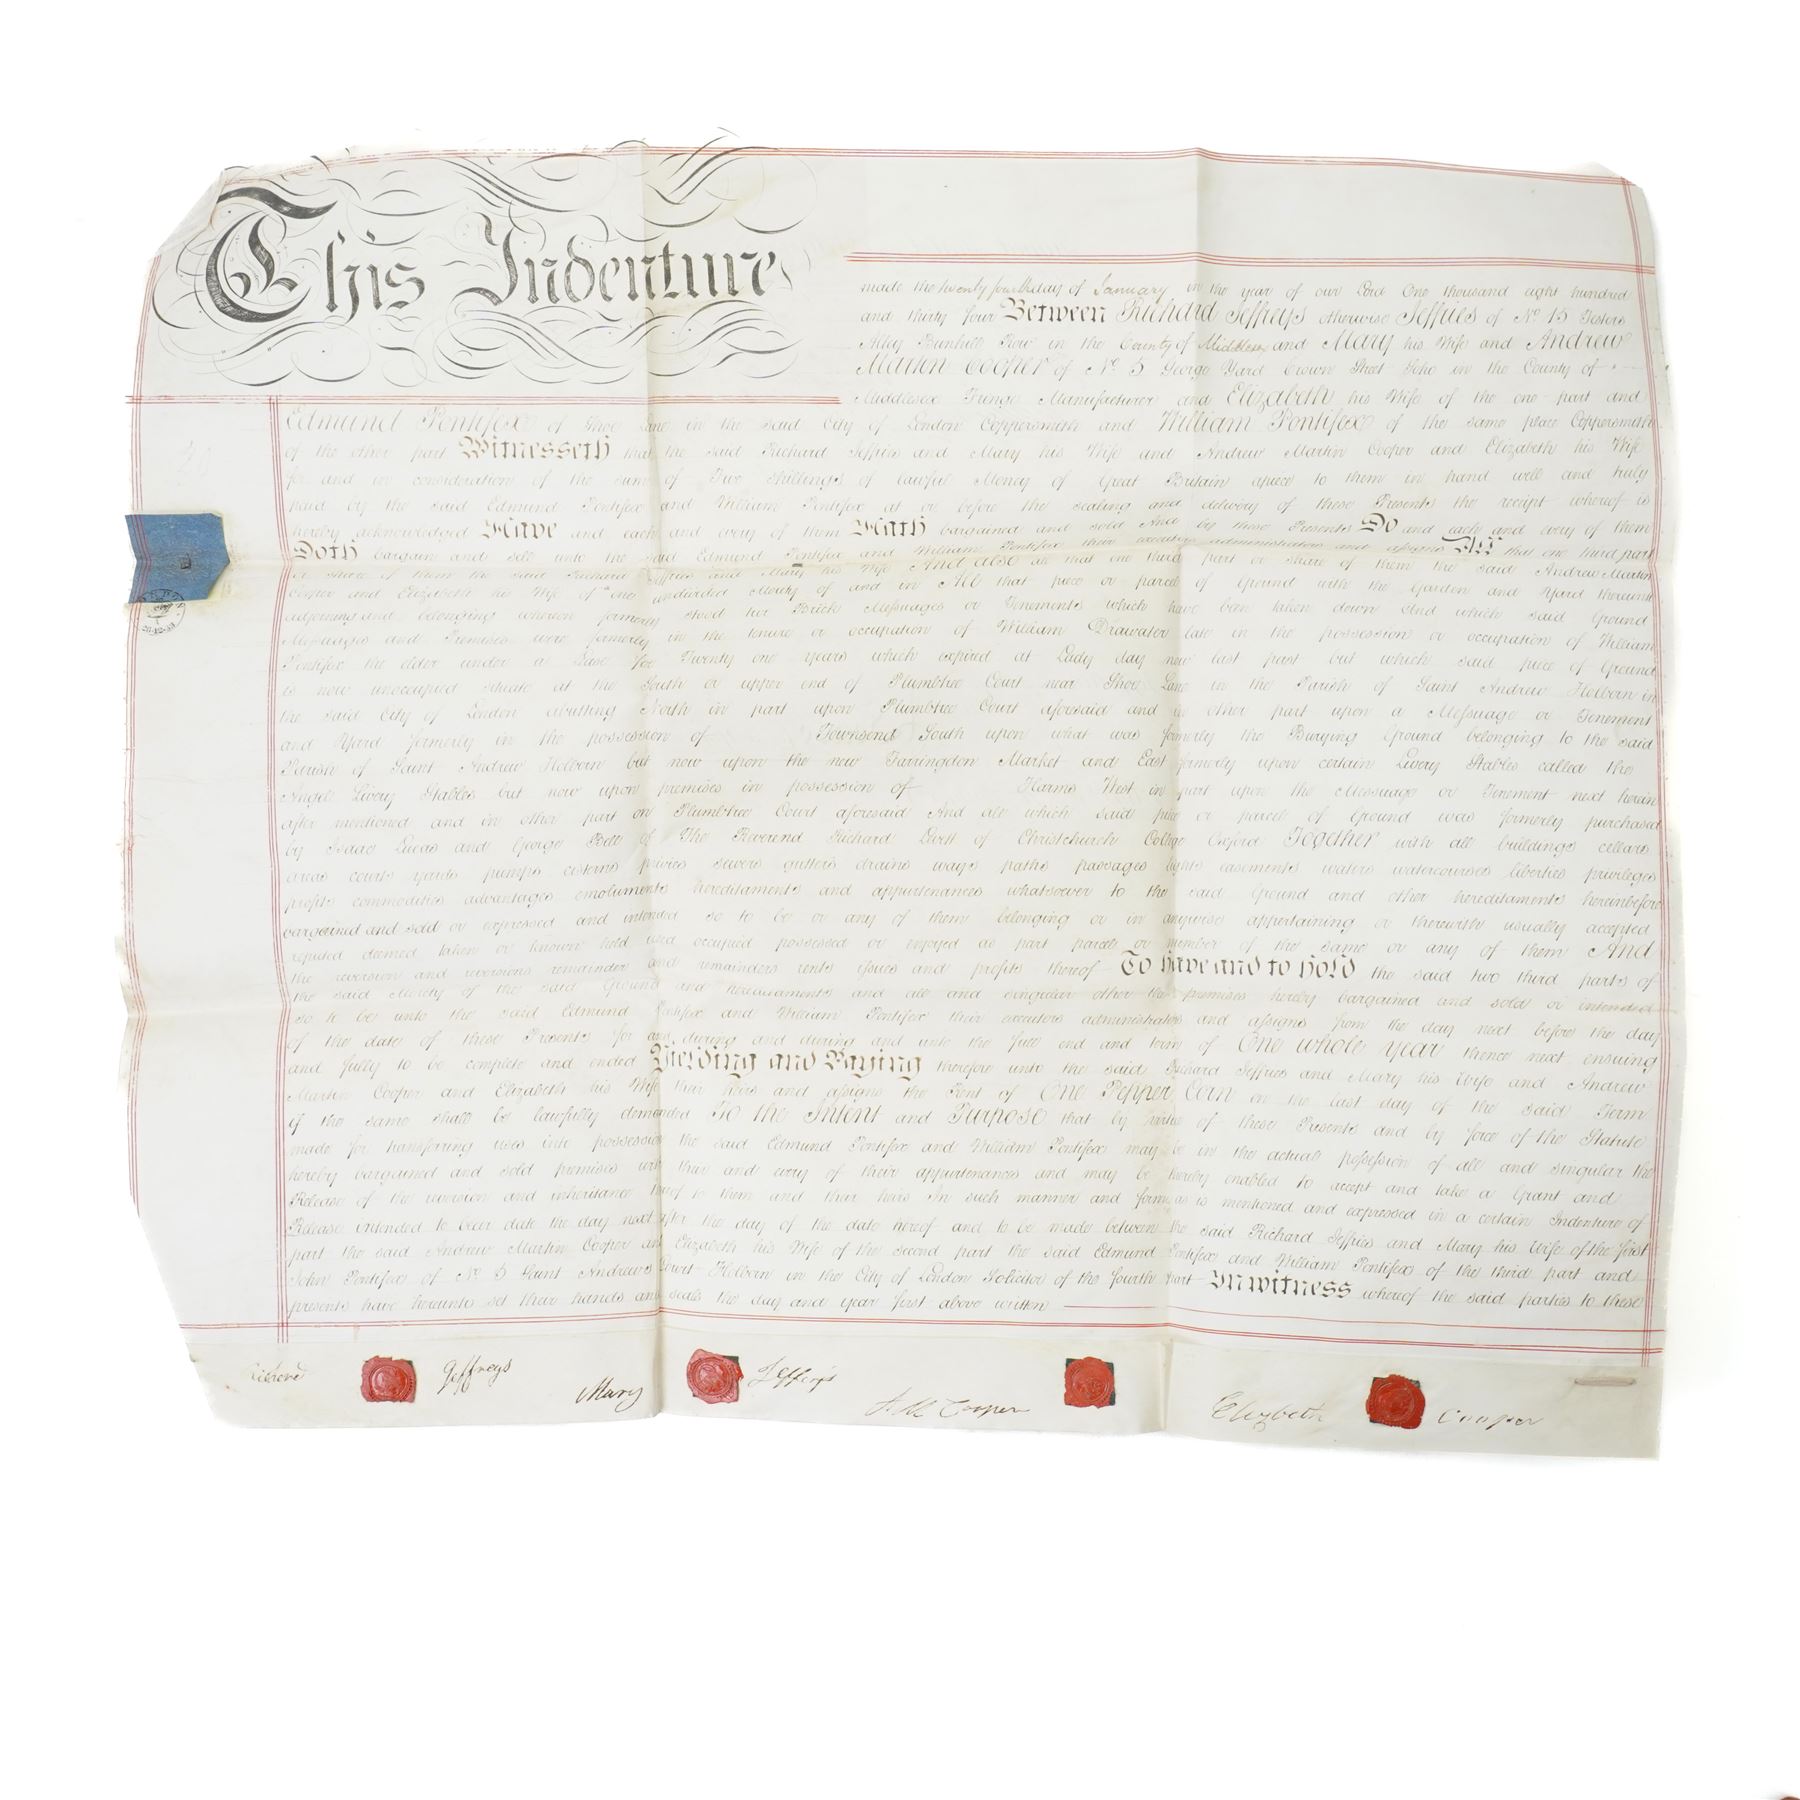 This Indenture
made the twenty fourth day of January in the year of our Lord One thousand eight hundred
and thirty four Between Richard Jeffreys otherwise Jeffries of No 15 Tosters
Alley Bunhill Row in the County of Middlesex and Mary his Wife and Andrew
Martin Cooper of No 5 George Yard Crown Street Soho in the County of
Middlesex Fringe Manufacturer and Elizabeth his Wife of the one part and
Edmund Pontifex of Shoe Lane in the said City of London Coppersmith and William Pontifex of the same place Coppersmith
of the other part Witnesseth that the said Richard Jeffries and Mary his Wife and Andrew Martin Cooper and Elizabeth his Wife
for and in consideration of the sum of Five Shillings of lawful Money of Great Britain apiece to them in hand well and truly
paid by the said Edmund Pontifex and William Pontifex at or before the sealing and delivery of these Presents the receipt whereof is
hereby acknowledged Have and each and every of them Hath bargained and sold And by these Presents Do and each and every of them
Doth bargain and sell unto the said Edmund Pontifex and William Pontifex their executors administrators and assigns All that one third part
or share of them the said Richard Jeffries and Mary his Wife And also all that one third part or share of them the said Andrew Martin
Cooper and Elizabeth his Wife of one undivided Moiety of and in All that piece or parcel of Ground with the Garden and Yard thereunto
adjoining and belonging whereon formerly stood two Brick Messuages or Tenements which have been taken down And which said Ground
Messuages and Premises were formerly in the tenure or occupation of William Drawater late in the possession or occupation of William
Pontifex the elder under a Lease for Twenty one years which expired at Lady day now last past but which said piece of Ground
is now unoccupied situate at the South or upper end of Plumbtree Court near Shoe Lane in the Parish of Saint Andrew Holborn in
the said City of London abutting North in part upon Plumbtree Court aforesaid and in other part upon a Messuage or Tenement
and Yard formerly in the possession of Townsend South upon what was formerly the Burying Ground belonging to the said
Parish of Saint Andrew Holborn but now upon the new Farringdon Market and East formerly upon certain Livery Stables called the
Angel Livery Stables but now upon premises in possession of Harms West in part upon the Messuage or Tenement next herein
after mentioned and in other part on Plumbtree Court aforesaid And all which said piece or parcel of Ground was formerly purchased
by Isaac Lucas and George Bell of The Reverend Richard Lett of Christchurch College Oxford Together with all buildings cellars
areas courts yards pumps cisterns privies sewers gutters drains ways paths passages lights easements waters watercourses liberties privileges
profits commodities advantages emoluments hereditaments and appurtenances whatsoever to the said Ground and other hereditaments hereinbefore
bargained and sold or expressed and intended so to be or any of them belonging or in anywise appertaining or therewith usually accepted
reputed deemed taken or known held used occupied possessed or enjoyed as part parcel or member of the same or any of them And
the reversion and reversions remainder and remainders rents issues and profits thereof To have and to hold the said two third parts of
the said Moiety of the said Ground and hereditaments and all and singular other the premises hereby bargained and sold or intended
so to be unto the said Edmund Pontifex and William Pontifex their executors administrators and assigns from the day next before the day
of the date of these Presents for and during and during and unto the full end and term of One whole year thence next ensuing
and fully to be complete and ended Yielding and Paying therefore unto the said Richard Jeffries and Mary his Wife and Andrew
Martin Cooper and Elizabeth his Wife their heirs and assigns the Rent of One Pepper Corn on the last day of the said Term
if the same shall be lawfully demanded To the Intent and Purpose that by virtue of these Presents and by force of the Statute
made for transferring uses into possession the said Edmund Pontifex and William Pontifex may be in the actual possession of all and singular the
hereby bargained and sold premises with their and every of their appurtenances and may be thereby enabled to accept and take a Grant and
Release of the reversion and inheritance thereof to them and their heirs In such manner and form as is mentioned and expressed in a certain Indenture of
Release intended to bear date the day next after the day of the date hereof and to be made between the said Richard Jeffries and Mary his Wife of the first
part the said Andrew Martin Cooper and Elizabeth his Wife of the second part the said Edmund Pontifex and William Pontifex of the third part and
John Pontifex of No 5 Saint Andrews Court Holborn in the City of London Solicitor of the fourth part In witness whereof the said parties to these
presents have hereunto set their hands and seals the day and year first above written
Richard Jeffreys
Mary Jefferys
A M Cooper
Elizbeth Cooper